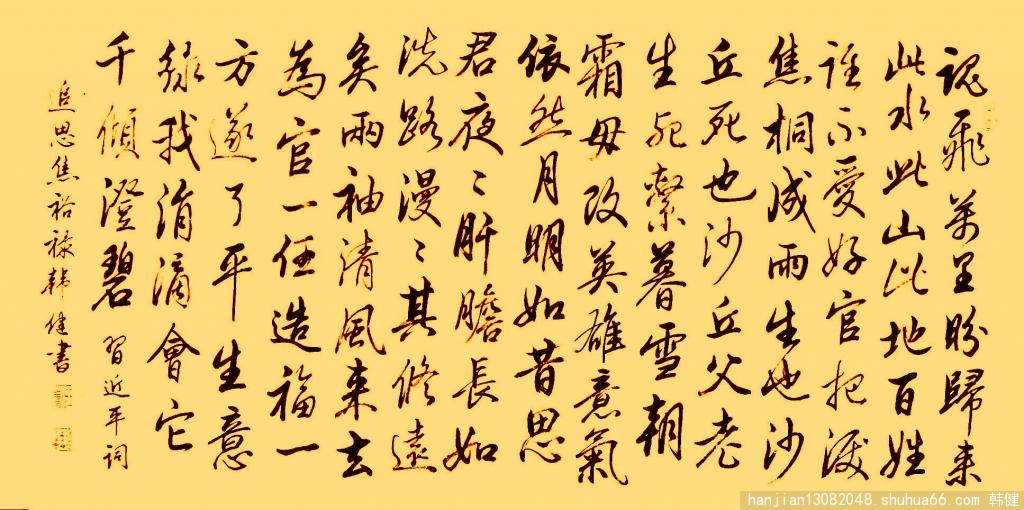 魂飛萬里盼歸来
此水此山此地百姓
誰不愛好官把淚
焦桐成雨生也沙
丘死也沙丘父老
生死繫暮雪朝
霜毋改英雄意氣
依然月明如昔思
君夜〻肝膽長如
洗路漫〻其修遠
矣兩袖清風来去
為官一任造福一
方遂了平生意
綠我涓滴會它
千傾澄碧 習近平詞
追思焦裕祿韓健書
hanjian13082048.shuhua66.com 韩健